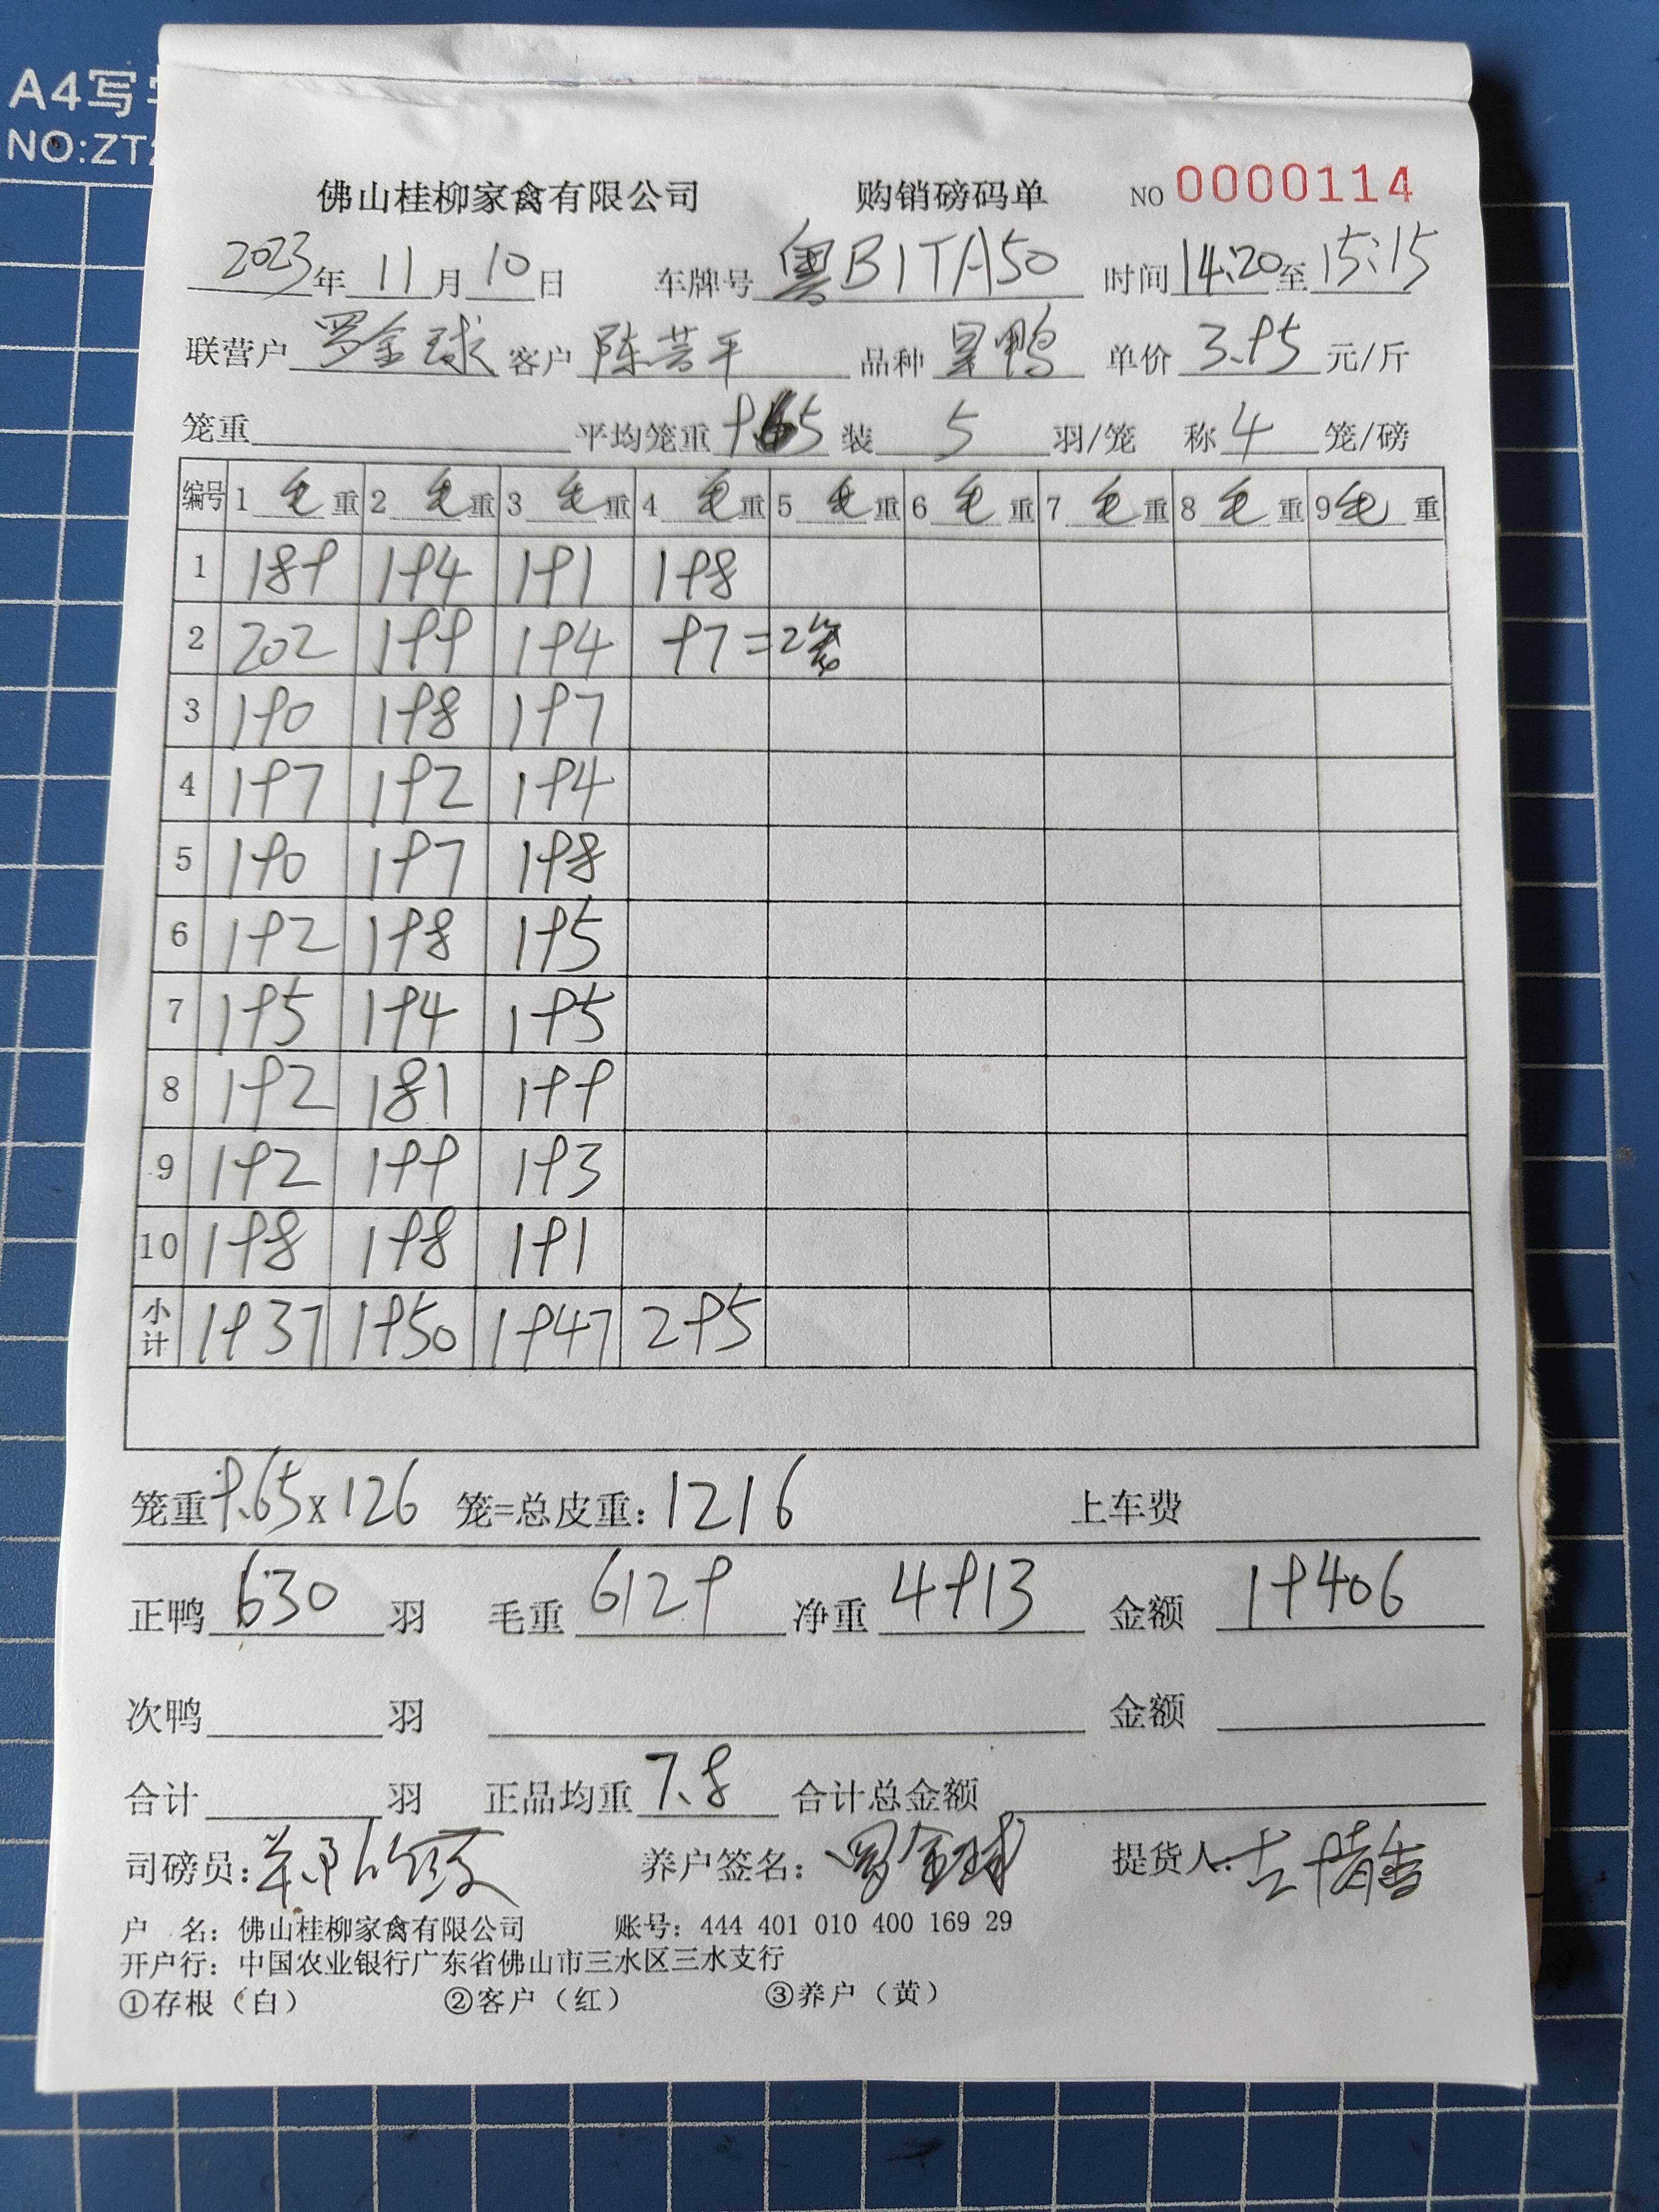 A4写
NO:ZT
佛山桂柳家禽有限公司 购销磅码单 NO 0000114
2023年11月10日 车牌号 粤B1TA50 时间 14:20至15:15
联营户 罗金球 客户 陈 平 品种 鸭 单价 3.95 元/斤
笼重 平均笼重 9.65 装 5 羽/笼 称 4 笼/磅
编号 1 毛重 2 毛重 3 毛重 4 毛重 5 毛重 6 毛重 7 毛重 8 毛重 9 毛重
1 189 194 191 198
2 202 199 194 97=2笼
3 190 198 197
4 197 192 194
5 190 197 198
6 192 198 195
7 195 194 195
8 192 181 199
9 192 199 193
10 198 198 191
小计 1937 1950 1947 295
笼重 9.65x126 笼=总皮重: 1216 上车费
正鸭 630 羽 毛重 6129 净重 4913 金额 19406
次鸭 羽 金额
合计 羽 正品均重 7.8 合计总金额
司磅员: 养户签名: 罗金球 提货人:
户 名: 佛山桂柳家禽有限公司 账号: 444 401 010 400 169 29
开户行: 中国农业银行广东省佛山市三水区三水支行
①存根（白） ②客户（红） ③养户（黄）